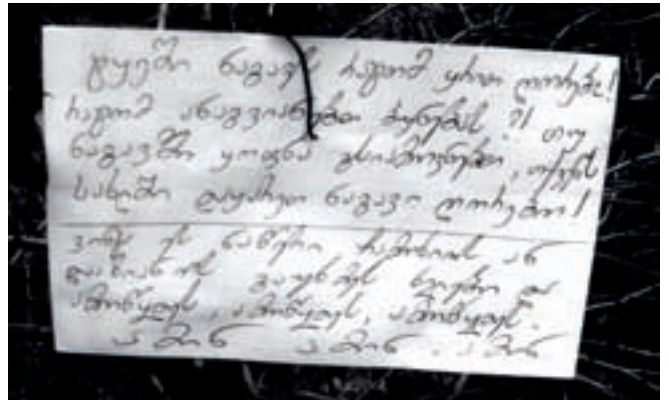 ტყეში ნაგავს რატომ ყრით ღორებო!
რატომ ანაგვიანებთ ბუნებას ?! თუ
ნაგავში ყოფნა გსიამოვნებთ, თქვენს
სახლში დაყარეთ ნაგავი ღორებო!
ვინც ეს ნაწერი ჩამოხიოს ან
დააზიანოს გაუხმეს ხელები და
ამოწყდეს, ამოწყდეს, ამოწყდეს.
ამინ ამინ. ამინ